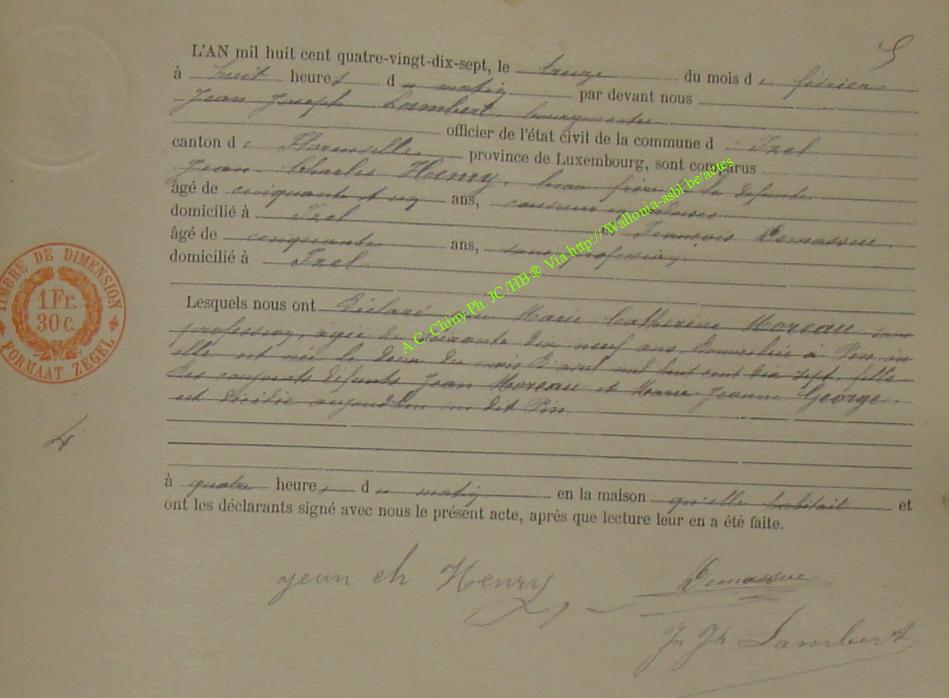 5
L'AN mil huit cent quatre-vingt-dix-sept, le treize du mois de février
à huit heures du matin par devant nous
Jean Joseph Lambert bourgmestre
officier de l'état civil de la commune d'Izel
canton de Florenville province de Luxembourg, sont comparus
Jean Charles Henry, beau frère à la défunte
âgé de cinquante et ans,
domicilié à Izel et François Demassue
âgé de cinquante ans, sans profession,
domicilié à Izel
Lesquels nous ont Déclaré que Marie Catherine Moreau, sans
profession, âgée de dix neuf ans domiciliée à Pin,
elle est née le deux du mois d'avril mil huit cent dix sept, fille
des conjoints défunts Jean Moreau et Marie Jeanne George
est décédée aujourd'hui au dit Pin,
4
à quatre heures du matin en la maison qu'elle habitait et
ont les déclarants signé avec nous le présent acte, après que lecture leur en a été faite.
jean ch Henry
Demassue
J. Jh Lambert
TIMBRE DE DIMENSION
1 Fr.
30 C.
FORMAAT ZEGEL
A.C. Chiny Ph. JC/HB® Via http://Wallonia-asbl.be/actes